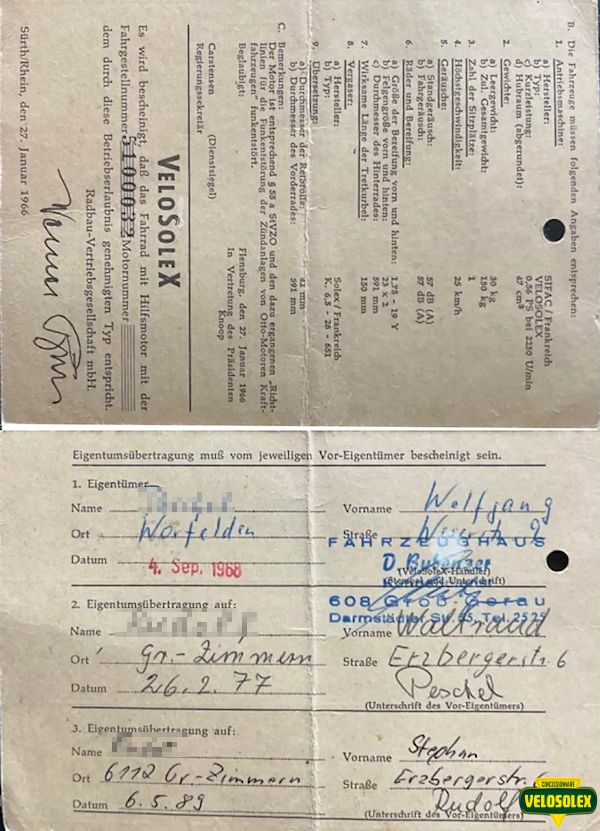 B. Die Fahrzeuge müssen folgenden Angaben entsprechen:
1. Antriebsmaschine:
a) Hersteller: SIFAC / Frankreich
b) Typ: VELOSOLEX
c) Kurzleistung: 0,56 PS bei 2250 U/min
d) Hubraum (abgerundet): 47 cm³
2. Gewichte:
a) Leergewicht: 30 kg
b) Zul. Gesamtgewicht: 150 kg
3. Zahl der Sitzplätze: 1
4. Höchstgeschwindigkeit: 25 km/h
5. Geräusche:
a) Standgeräusch: 57 dB (A)
b) Fahrgeräusch: 57 dB (A)
6. Räder und Bereifung:
a) Größe der Bereifung vorn und hinten: 1,75 - 19 Y
b) Felgengröße vorn und hinten: 23 x 2
c) Durchmesser des Hinterrades: 591 mm
7. Wirksame Länge der Tretkurbel: 150 mm
8. Vergaser:
a) Hersteller: Solex / Frankreich
b) Typ: K. 6,5 - 28 - 651
9. Übersetzung:
a) Durchmesser der Reibrolle: 42 mm
b) Durchmesser des Vorderrades: 591 mm
C. Bemerkungen:
Der Motor ist entsprechend § 55 a StVZO und den dazu ergangenen „Richt-
linien für die Funkentstörung der Zündanlagen von Otto-Motoren Kraft-
fahrzeugen funkentstört.
Beglaubigt:
Flensburg, den 27. Januar 1966
In Vertretung des Präsidenten
Knoop
Carstensen (Dienstsiegel)
Regierungssekretär
VELOSOLEX
Es wird bescheinigt, daß das Fahrrad mit Hilfsmotor mit der
Fahrgestellnummer 5100032 Motornummer
dem durch diese Betriebserlaubnis genehmigten Typ entspricht.
Radbau-Vertriebsgesellschaft mbH.
Sürth/Rhein, den 27. Januar 1966
Eigentumsübertragung muß vom jeweiligen Vor-Eigentümer bescheinigt sein.
1. Eigentümer
Name Vorname Wolfgang
Ort Worfelden Straße
FAHRZEUGHAUS
Datum 4. Sep. 1968
(VeloSoleX-Händler)
(Stempel und Unterschrift)
608 Groß-Gerau
Darmstädter Str. 65, Tel. 2525
2. Eigentumsübertragung auf:
Name Vorname Waltraud
Ort Gr.-Zimmern Straße Erzbergerstr. 6
Datum 26.2.77 Peschel
(Unterschrift des Vor-Eigentümers)
3. Eigentumsübertragung auf:
Name Vorname Stephan
Ort 6112 Gr-Zimmern Straße Erzbergerstr. 6
Datum 6.5.89 Rudolf
(Unterschrift des Vor-Eigentümers)
CONCESSIONNAIRE
VELOSOLEX